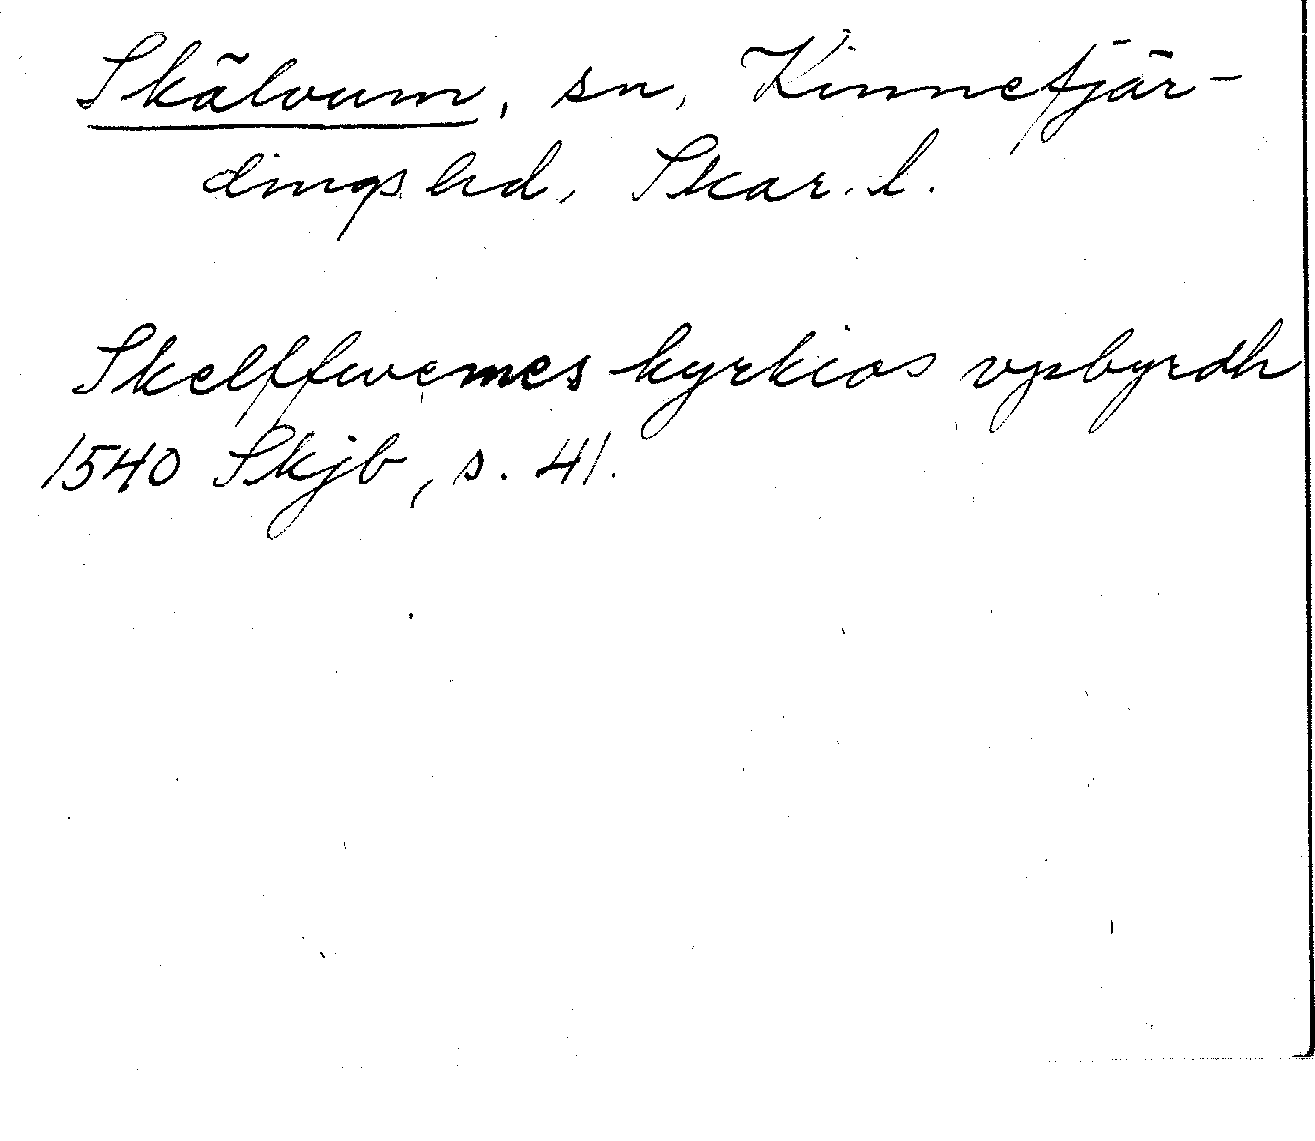 Skälvum, sn, Kinnefjär-
dings hd, Skar. l.
Skelffwemes kyrkios vpbyrdh
1540 Skjb, s. 41.